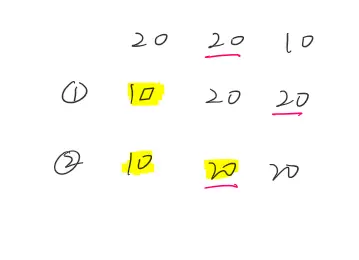 20 20 10
① 10 20 20
② 10 20 20